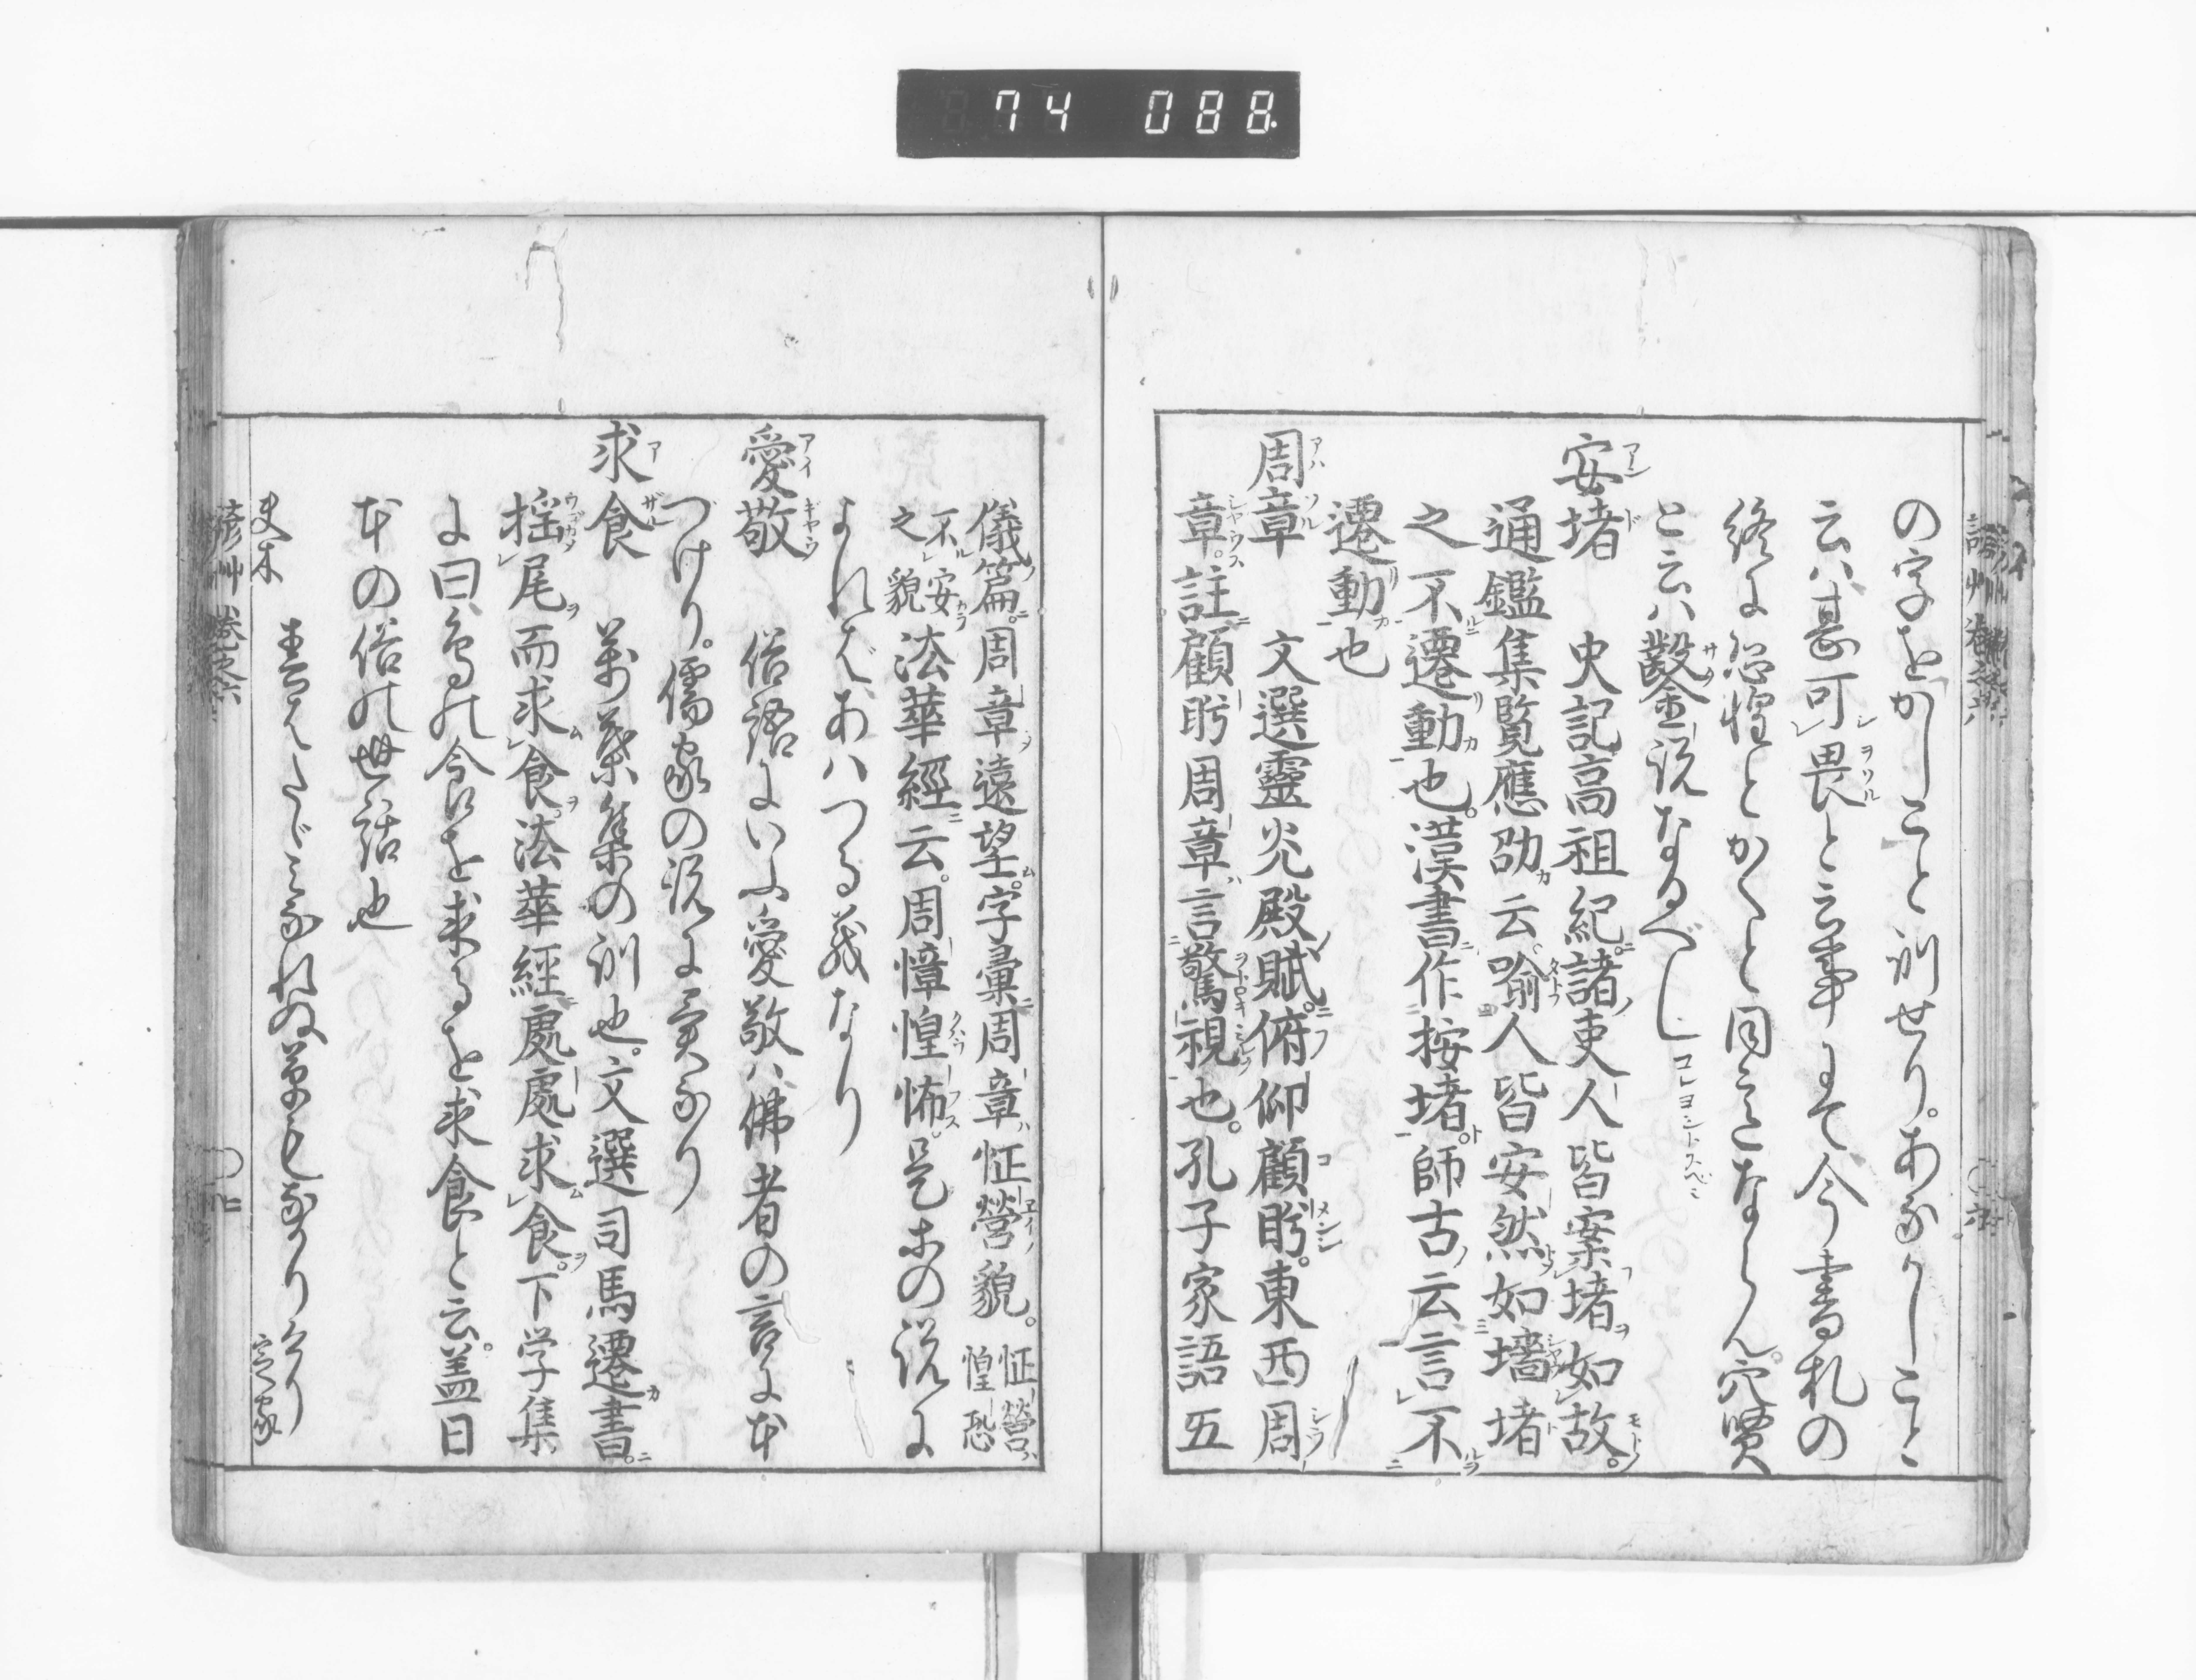 74 088
の字をかしこと訓せりあなかしこと
云ハ甚可畏と云事にて今書札の
終に恐惶とかくと同意とならん穴賢
と云ハ鑿説なるべし コレヨシトスベシ
安堵 史記高祖紀諸吏人皆案堵如故
通鑑集覧應劭云喻人皆安然如墻堵
之不遷動也漢書作按堵師古云言不
遷動也
周章 文選靈光殿賦俯仰顧眄東西周
章註顧眄周章言驚視也孔子家語五
儀篇周章遠望字彙周章怔營貌 怔營惶恐
不安之貌 法華經云周慞惶怖是等の説に
よればあハつる義なり
愛敬 俗語にいふ愛敬ハ佛者の言に本
づけり儒家の説に異なり
求食 萬葉集の訓也文選司馬遷書
揺尾而求食法華經處處求食下学集
に曰鳥の食を求るを求食と云盖日
本の俗の世話也
夫木
定家
諺艸 巻之六